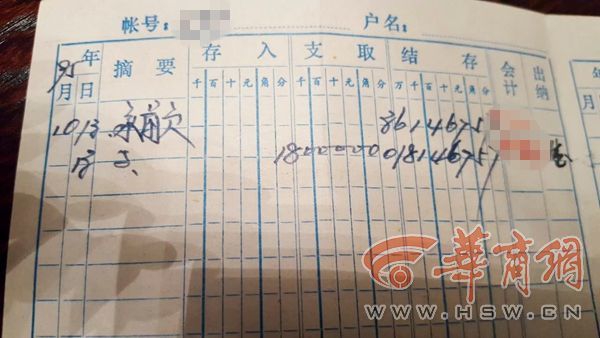 帐号: 户名:
95年 摘要 存入 支取 结存 会计 出纳
月 日 千百十元角分 千百十元角分 万千百十元角分
10 13 承前欠 3614675
1800000 1814675
華商網
WWW.HSW.CN